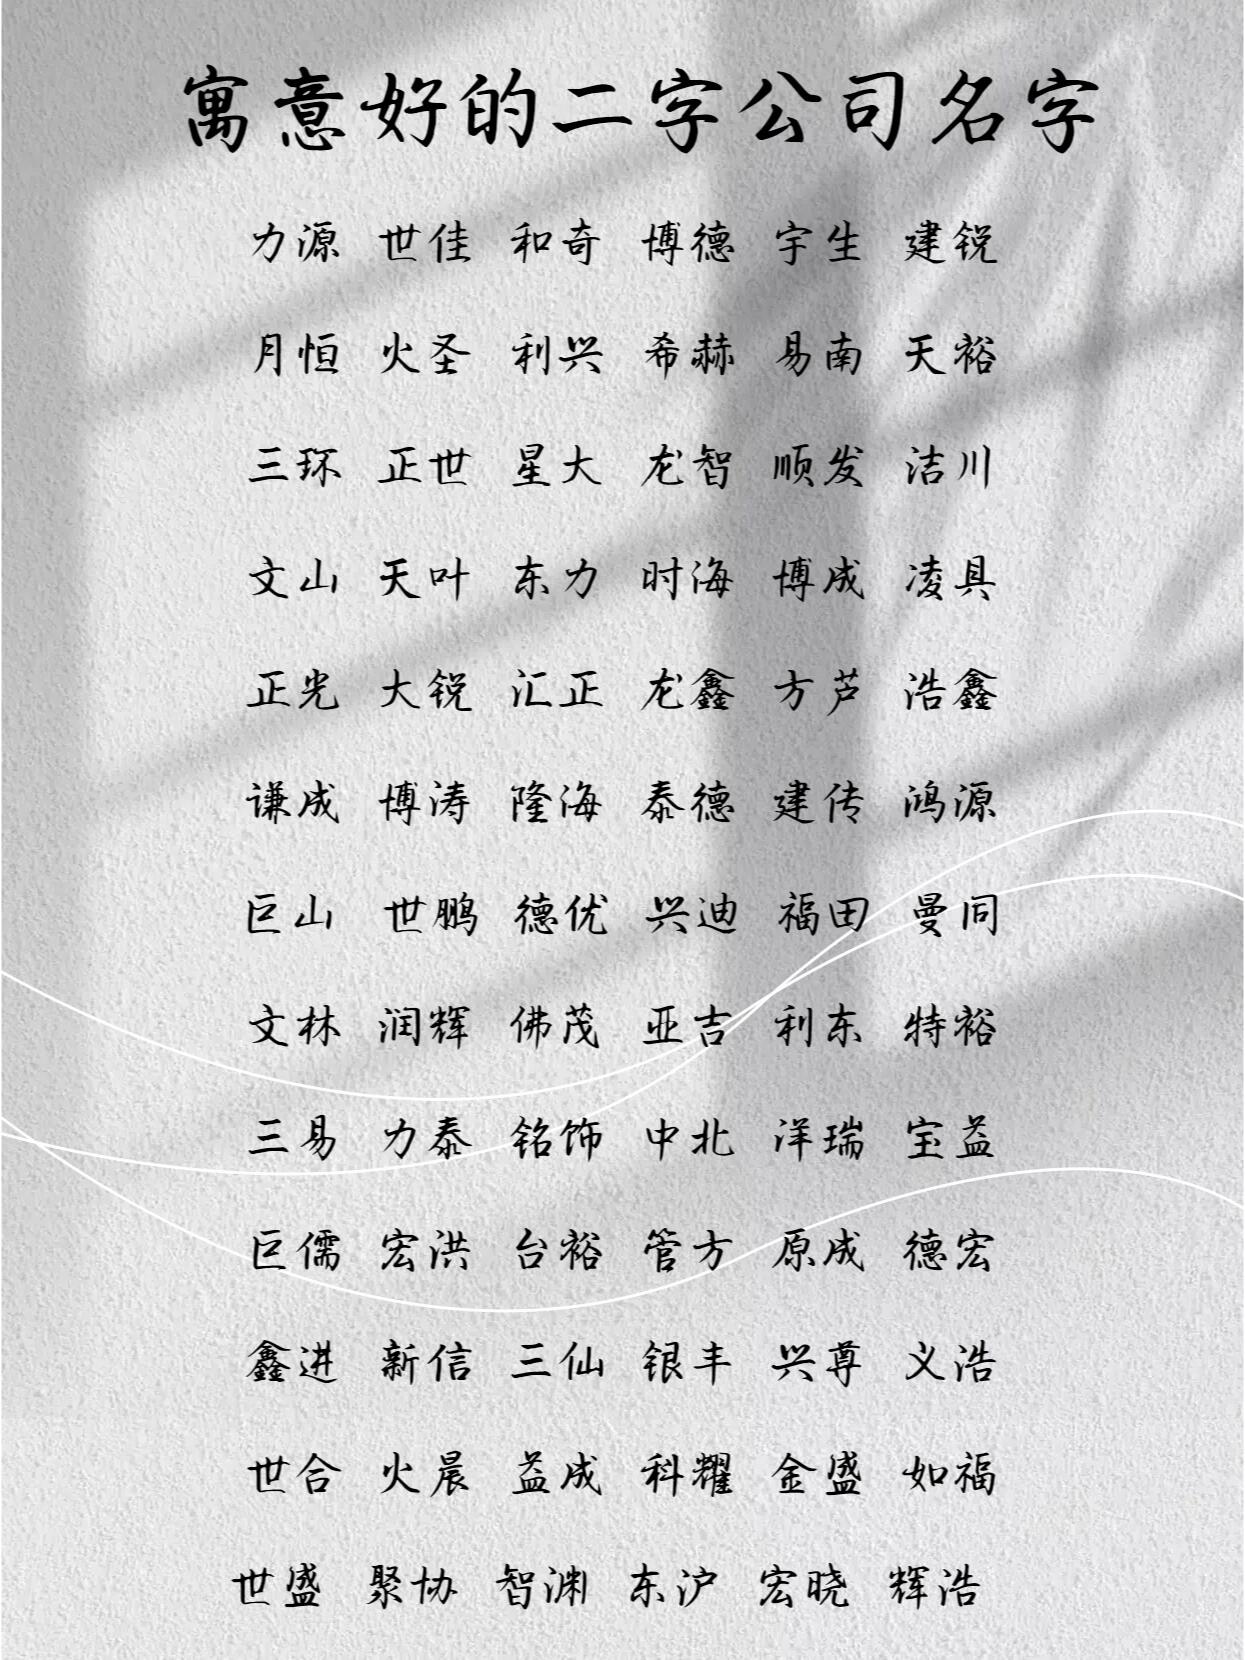 寓意好的二字公司名字
力源 世佳 和奇 博德 宇生 建锐
月恒 火圣 利兴 希赫 易南 天裕
三环 正世 星大 龙智 顺发 洁川
文山 天叶 东力 时海 博成 凌具
正光 大锐 汇正 龙鑫 方芦 浩鑫
谦成 博涛 隆海 泰德 建传 鸿源
巨山 世鹏 德优 兴迪 福田 曼同
文林 润辉 佛茂 亚吉 利东 特裕
三易 力泰 铭饰 中北 洋瑞 宝益
巨儒 宏洪 台裕 管方 原成 德宏
鑫进 新信 三仙 银丰 兴尊 义浩
世合 火晨 益成 科耀 金盛 如福
世盛 聚协 智渊 东沪 宏晓 辉浩